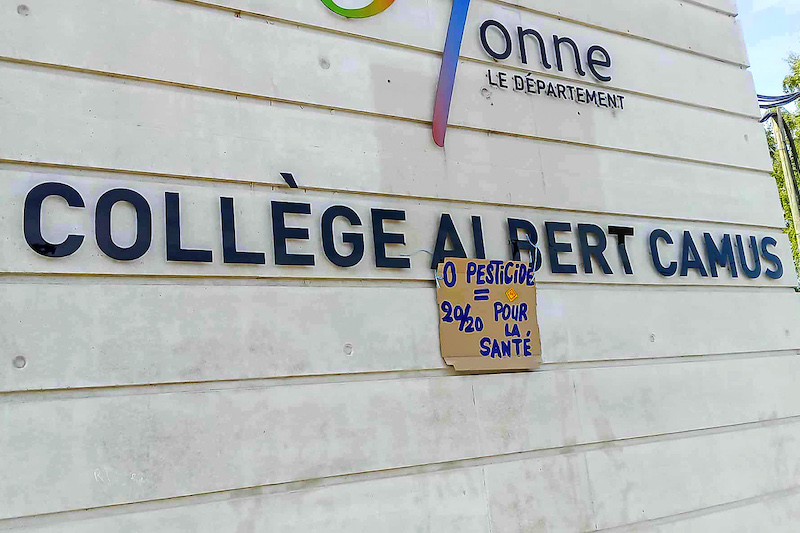 Yonne
LE DÉPARTEMENT
COLLÈGE ALBERT CAMUS
0 PESTICIDE
=
20/20 POUR
LA
SANTÉ